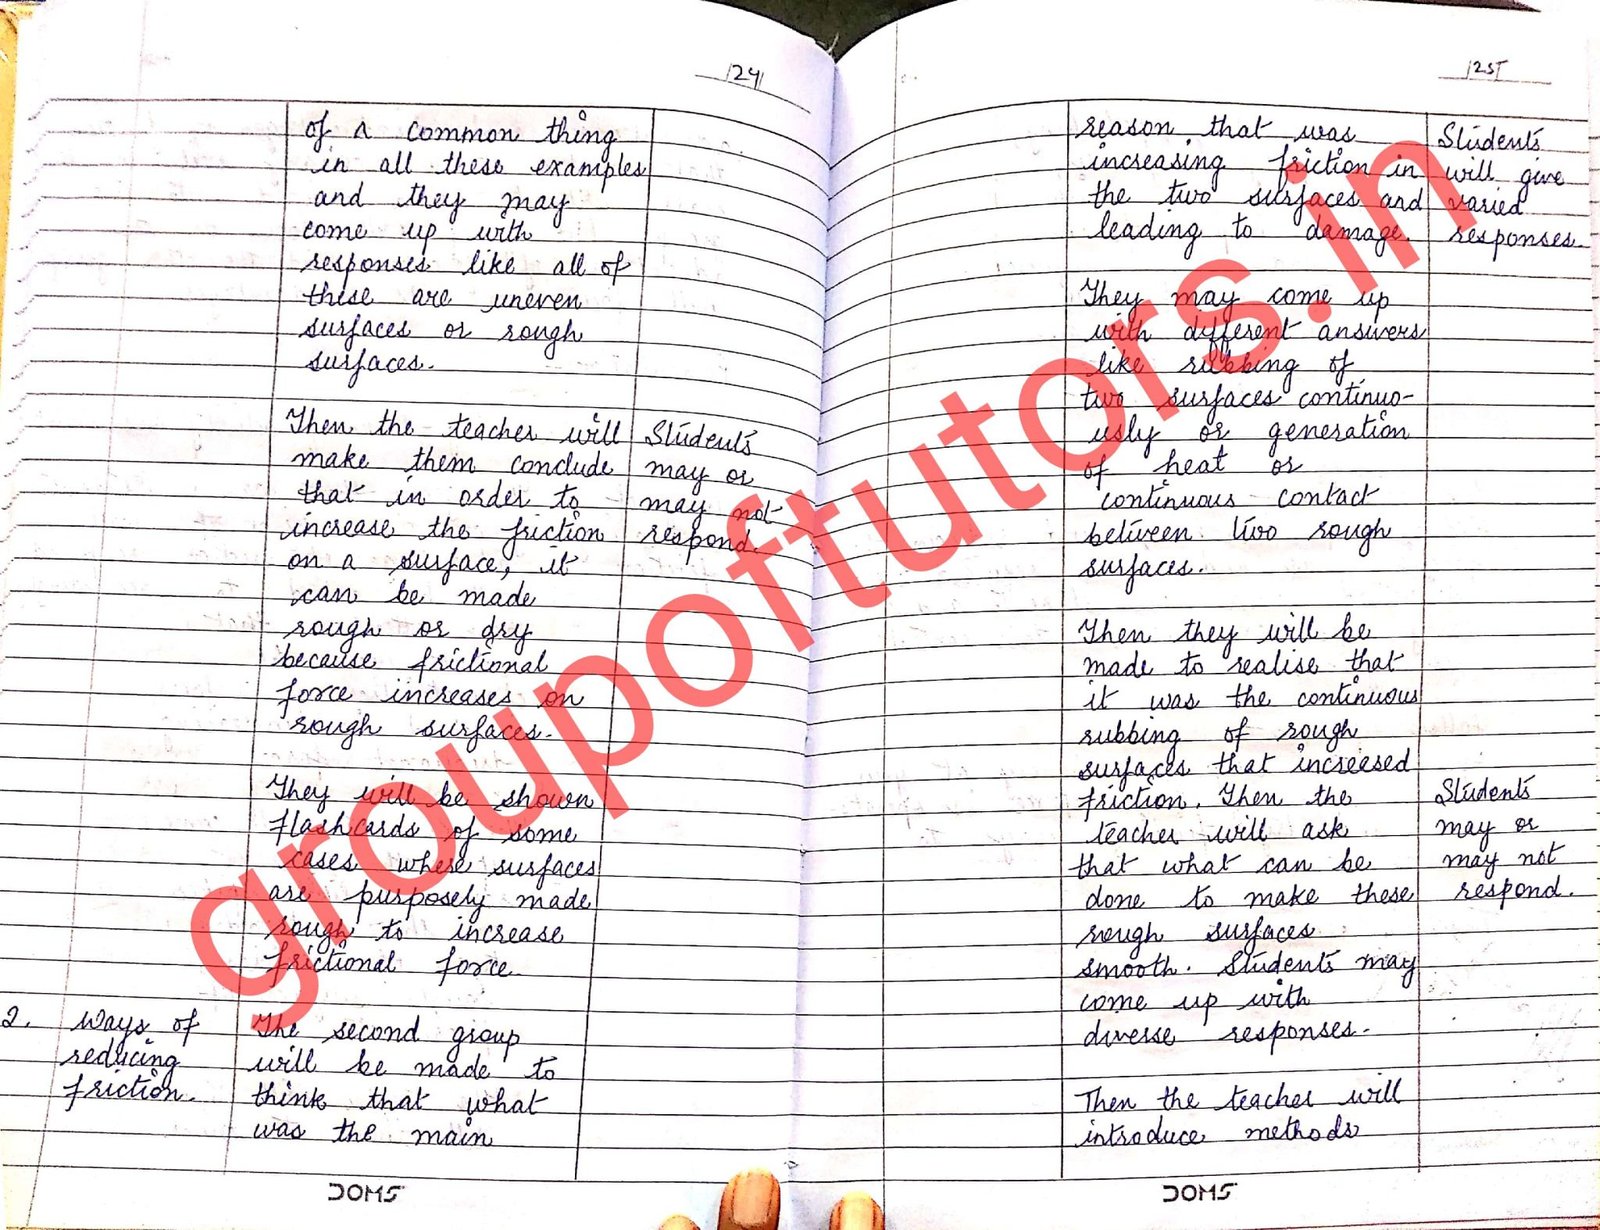 124
of a common thing
in all these examples
and they may
come up with
responses like all of
these are uneven
surfaces or rough
surfaces.
Then the teacher will
make them conclude
that in order to
increase the friction
on a surface, it
can be made
rough or dry
because frictional
force increases on
rough surfaces.
Students
may or
may not
respond.
They will be shown
flashcards of some
cases where surfaces
are purposely made
rough to increase
frictional force
2. Ways of
reducing
friction.
The second group
will be made to
think that what
was the main
DOMS
125
reason that was
increasing friction in
the two surfaces and
leading to damage.
Students
will give
varied
responses.
They may come up
with different answers
like rubbing of
two surfaces continuo-
usly or generation
of heat or
continuous contact
between two rough
surfaces.
Then they will be
made to realise that
it was the continuous
rubbing of rough
surfaces that increesed
friction. Then the
teacher will ask
that what can be
done to make these
rough surfaces
smooth. Students may
come up with
diverse responses.
Students
may or
may not
respond.
Then the teacher will
introduce methods
DOMS
groupoftutors.in